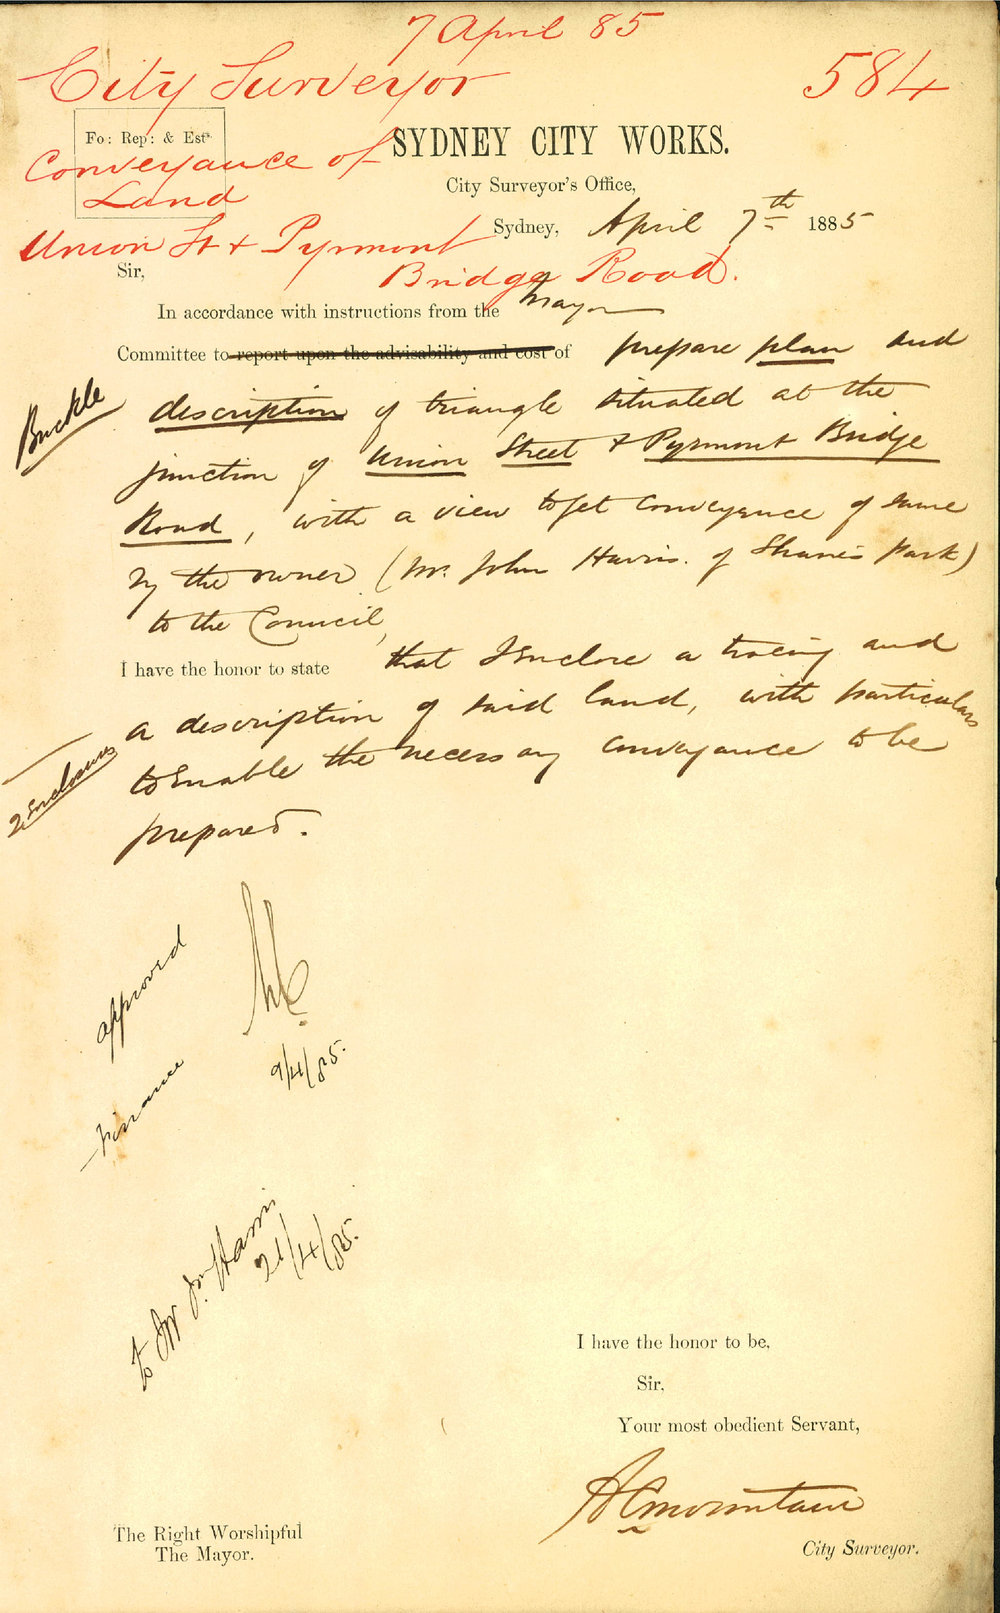 7 April 85
City Surveyor
584
Fo: Rep: & Est.
SYDNEY CITY WORKS.
Conveyance of
Land
City Surveyor's Office,
Union St & Pyrmont
Bridge Road.
Sydney, April 7th 1885
Sir,
In accordance with instructions from the Mayor
Committee to report upon the advisability and cost of prepare plan and
Buckle
description of triangle situated at the
junction of Union Street & Pyrmont Bridge
Road, with a view to get conveyance of same
by the owner (Mr. John Harris of Shane's Park)
to the Council,
I have the honor to state that I enclose a tracing and
a description of said land, with particulars
2 Enclosures
to enable the necessary conveyance to be
prepared.
approved
9/4/85.
Finance
to Mr Jn. Harris
21/4/85.
I have the honor to be,
Sir,
Your most obedient Servant,
A C Mountain
City Surveyor.
The Right Worshipful
The Mayor.